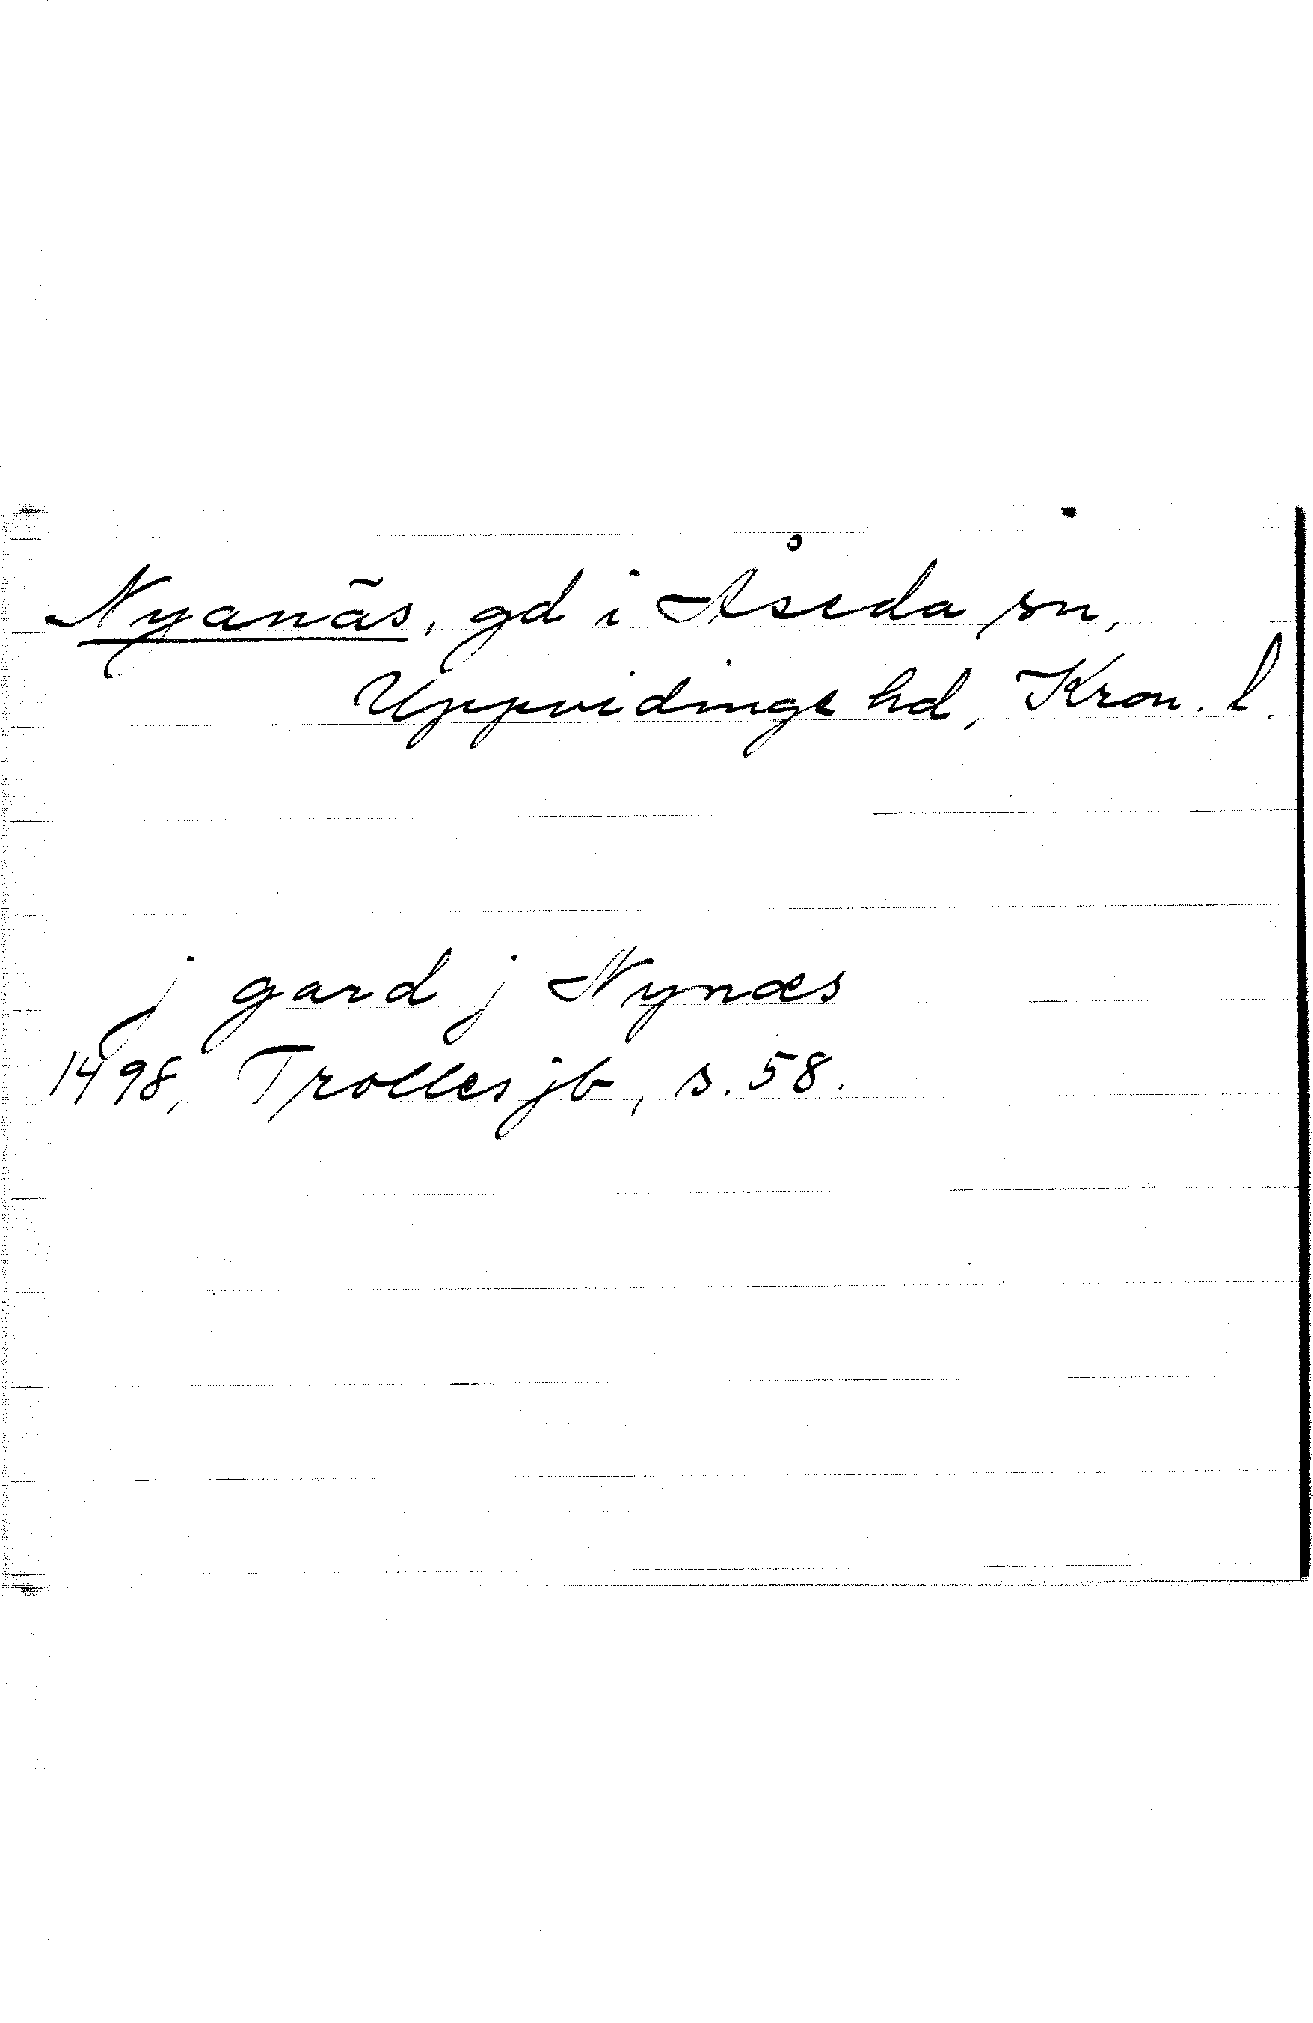 Nyanäs, gd i Åseda sn,
Uppvidinge hd, Kron. l.
j gard j Nynæs
1498, Trolles jb, s. 58.